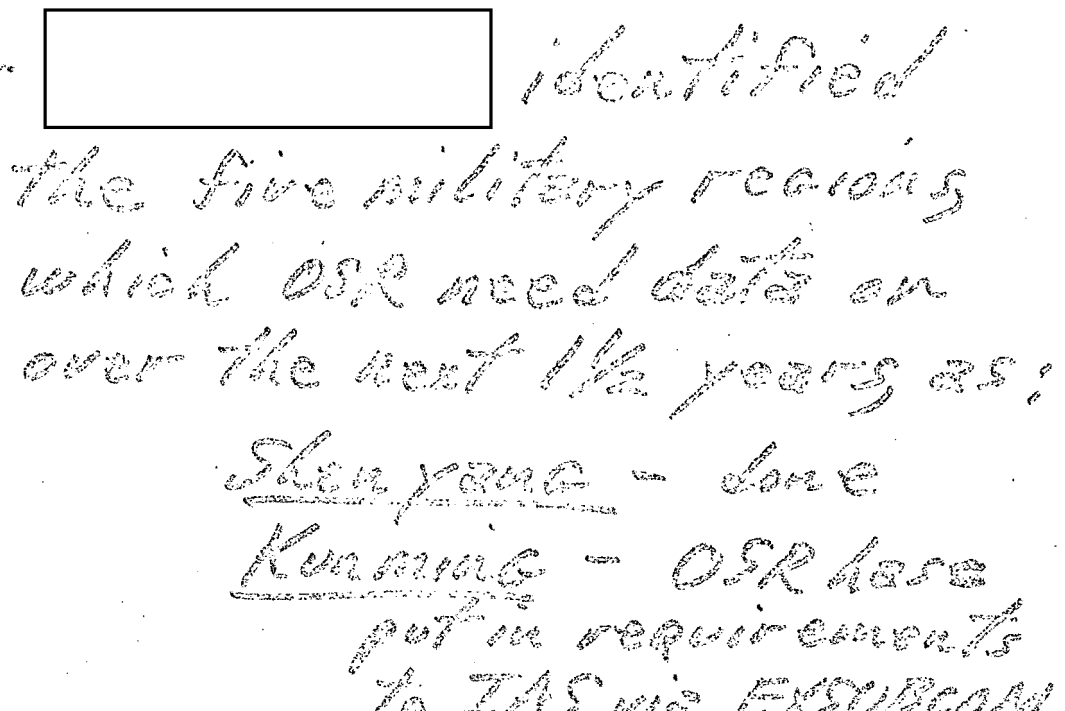 identified
the five military regions
which OSR need data on
over the next 1 1/2 years as:
Shenyang - done
Kunming - OSR have
put in requirements
to IAS via EXSUBCOM